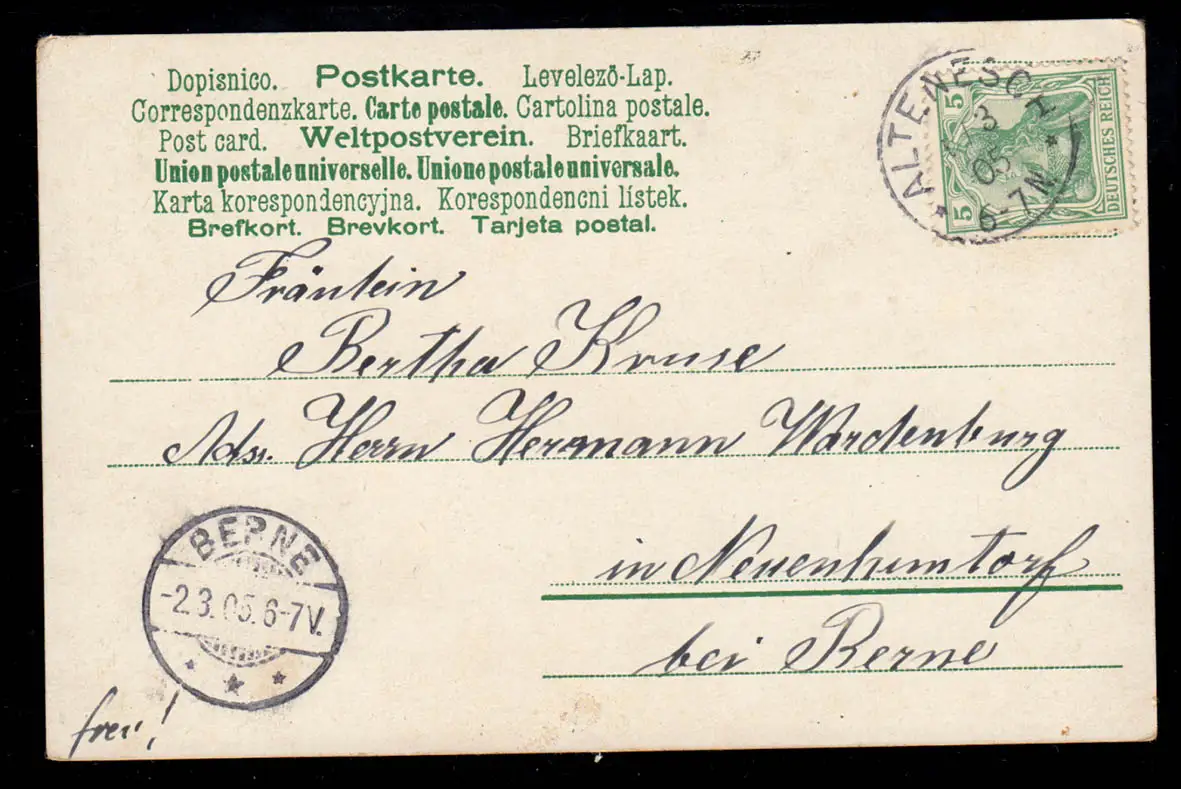 Dopisnico. Postkarte. Levelezö-Lap.
Correspondenzkarte. Carte postale. Cartolina postale.
Post card. Weltpostverein. Briefkaart.
Union postale universelle. Unione postale universale.
Karta korespondencyjna. Korespondencni listek.
Brefkort. Brevkort. Tarjeta postal.
ALTENESCH
3
05
6-7N
5
5
DEUTSCHES REICH
Fräulein
Bertha Kruse
Adr. Herrn Hermann Wardenburg
in Neuenhuntorf
bei Berne
BERNE
-2.3.05.6-7V.
frei!